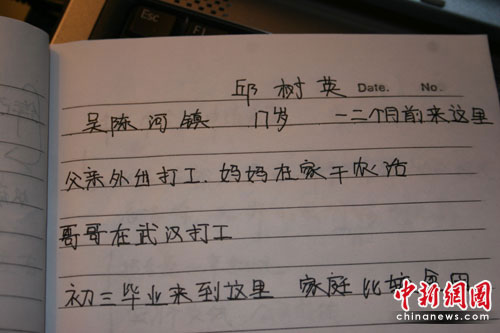 Esc
邱树英 Date. No.
吴陈河镇 17岁 一二个月前来这里
父亲外出打工.妈妈在家干农活
哥哥在武汉打工
初三毕业来到这里 家庭比较
中新網
chinanews.com